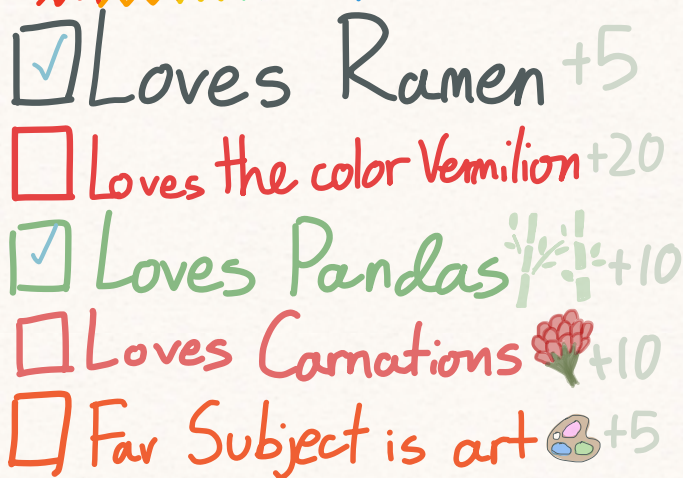 Loves Ramen +5
Loves the color Vermilion +20
Loves Pandas +10
Loves Carnations +10
Fav Subject is art +5